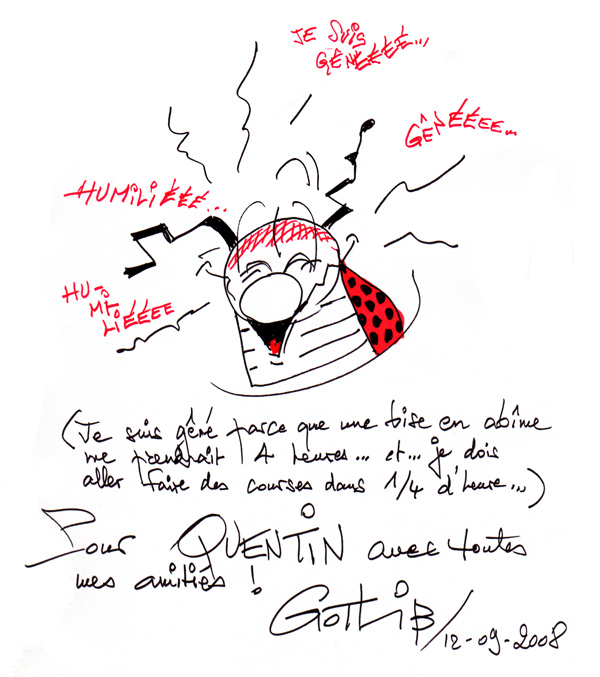 JE SUIS
GÊNÉÉÉÉ...
GÊNÉÉEE...
HUMILIÉÉÉ...
HU-
MI-
LIÉÉÉEE
(Je suis gêné parce que une bise en abîme
me prendrait 14 heures... et... je dois
aller faire des courses dans 1/4 d'heure...)
Pour QUENTIN avec toutes
mes amitiés !
GOTLIB/12-09-2008